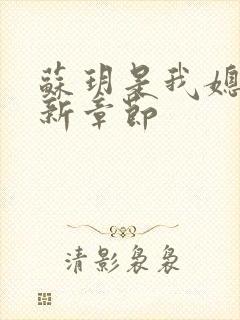 蘇玥是我媳
新章節
清影裊裊